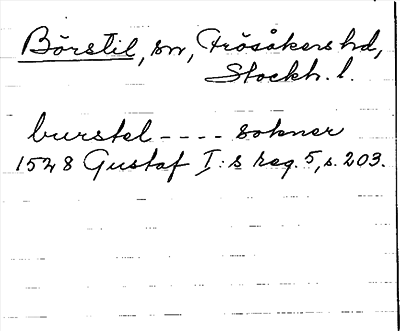 Börstil, sn, Frösåkers hd,
Stockh. l.
burstel ---- sokner
1528 Gustaf I:s reg. 5, s. 203.